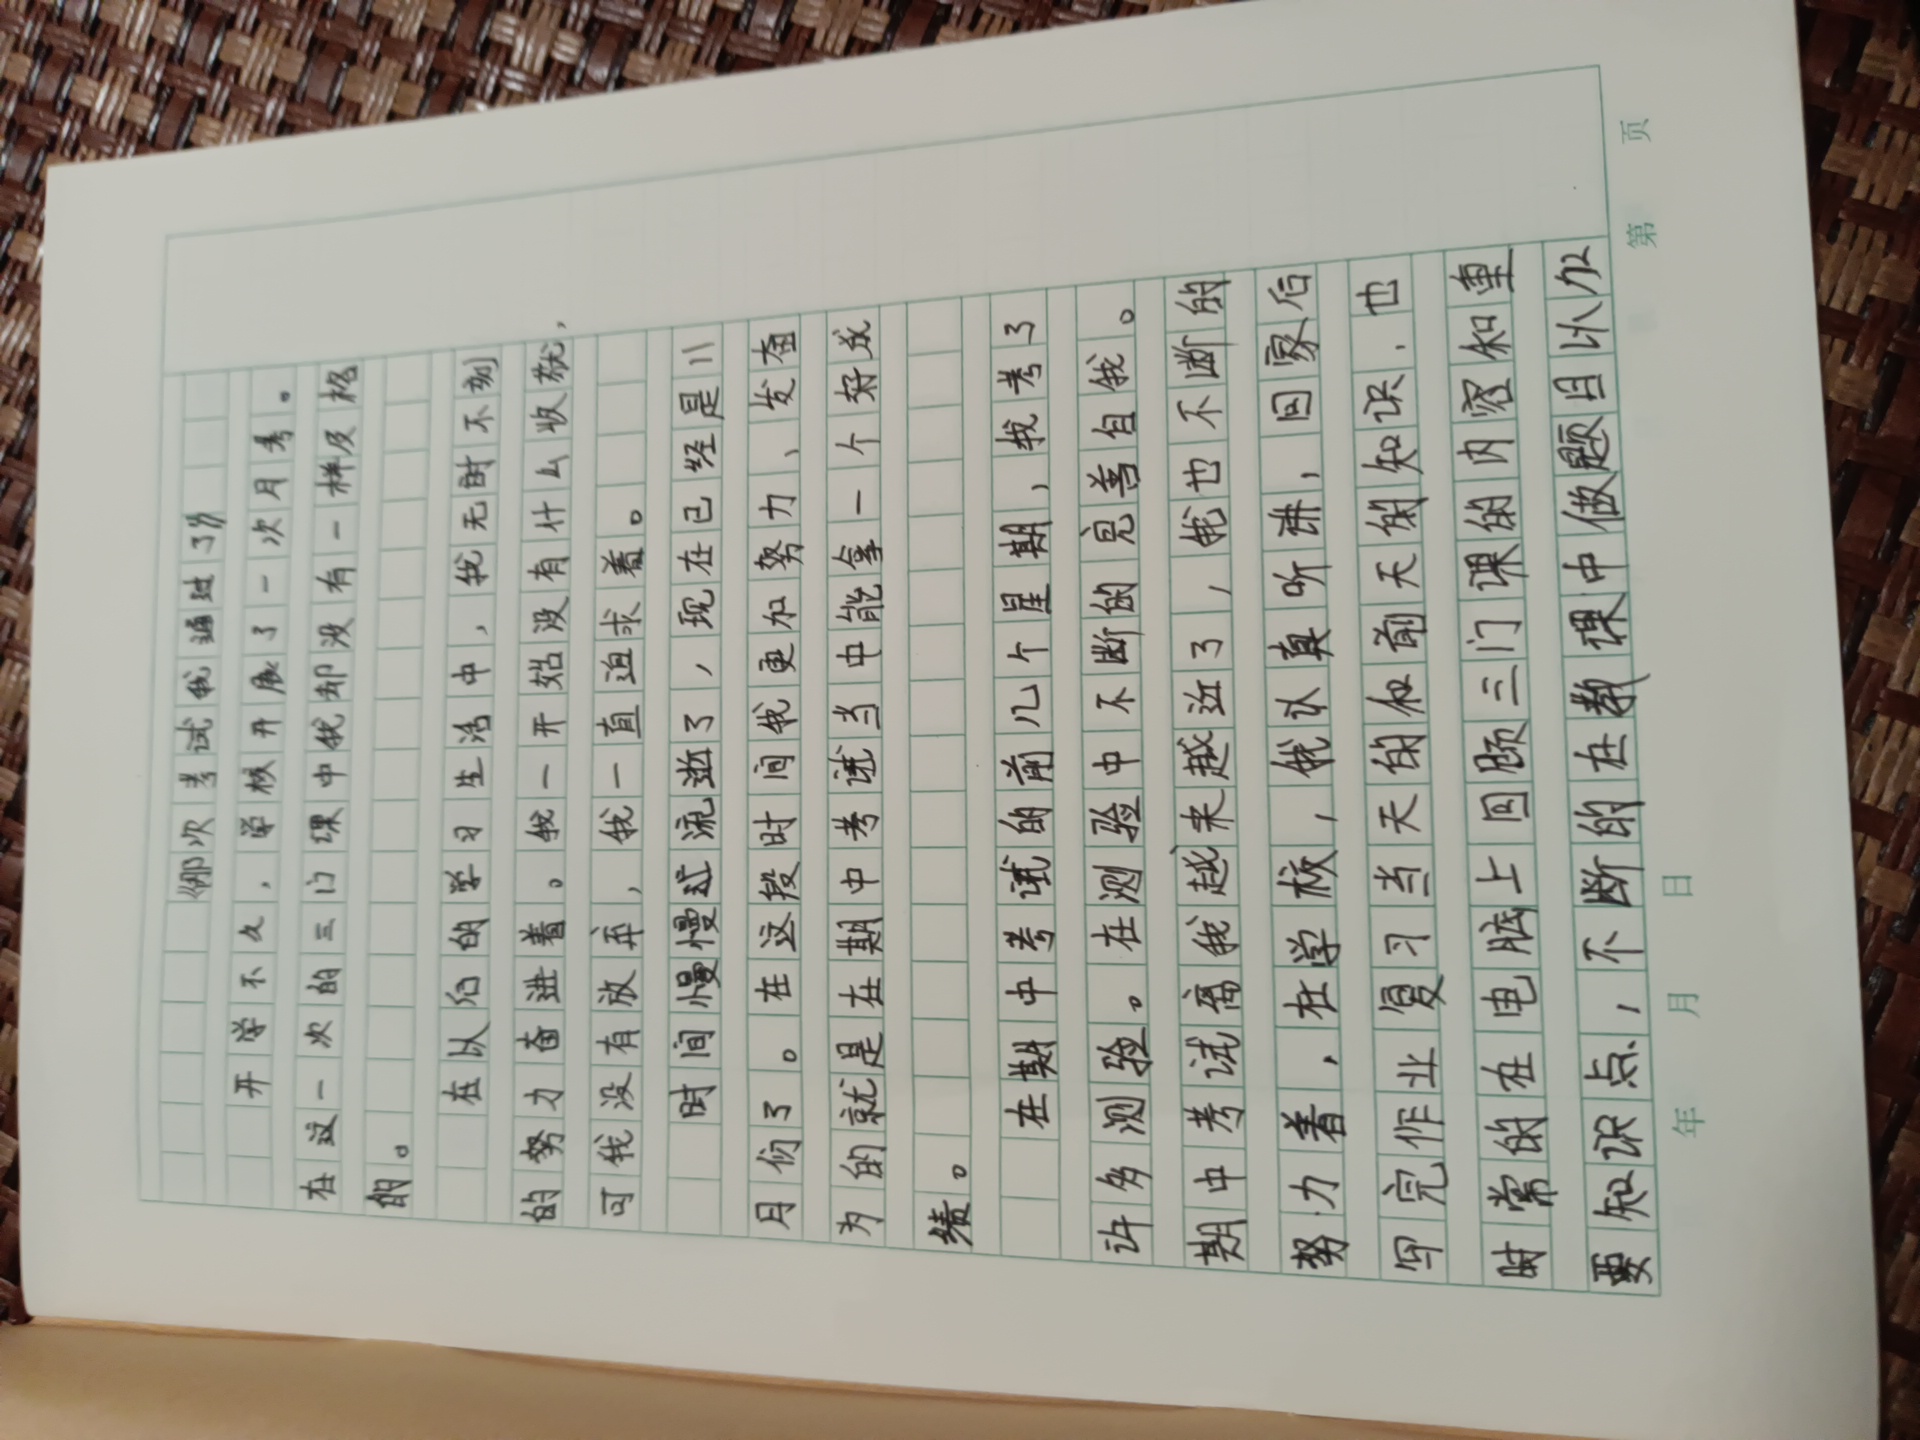 《那次考试我通过了》
开学不久，学校开展了一次月考。
在这一次的三门课中我却没有一样及格
的。
在以后的学习生活中，我无时不刻
的努力奋进着。我一开始没有什么收获，
可我没有放弃，我一直追求着。
时间慢慢流逝了，现在已经是11
月份了。在这段时间我更加努力、发奋
为的就是在期中考试当中能拿一个好成
绩。
在期中考试的前几个星期，我考了
许多测验。在测验中不断的完善自我。
期中考试离我越来越近了，我也不断的
努力着，在学校，我认真听讲，回家后
写完作业复习当天的和前天的知识，也
时常的在电脑上回顾三门课的内容和重
要知识点，不断的在教课中做题目以加
年 月 日 第 页